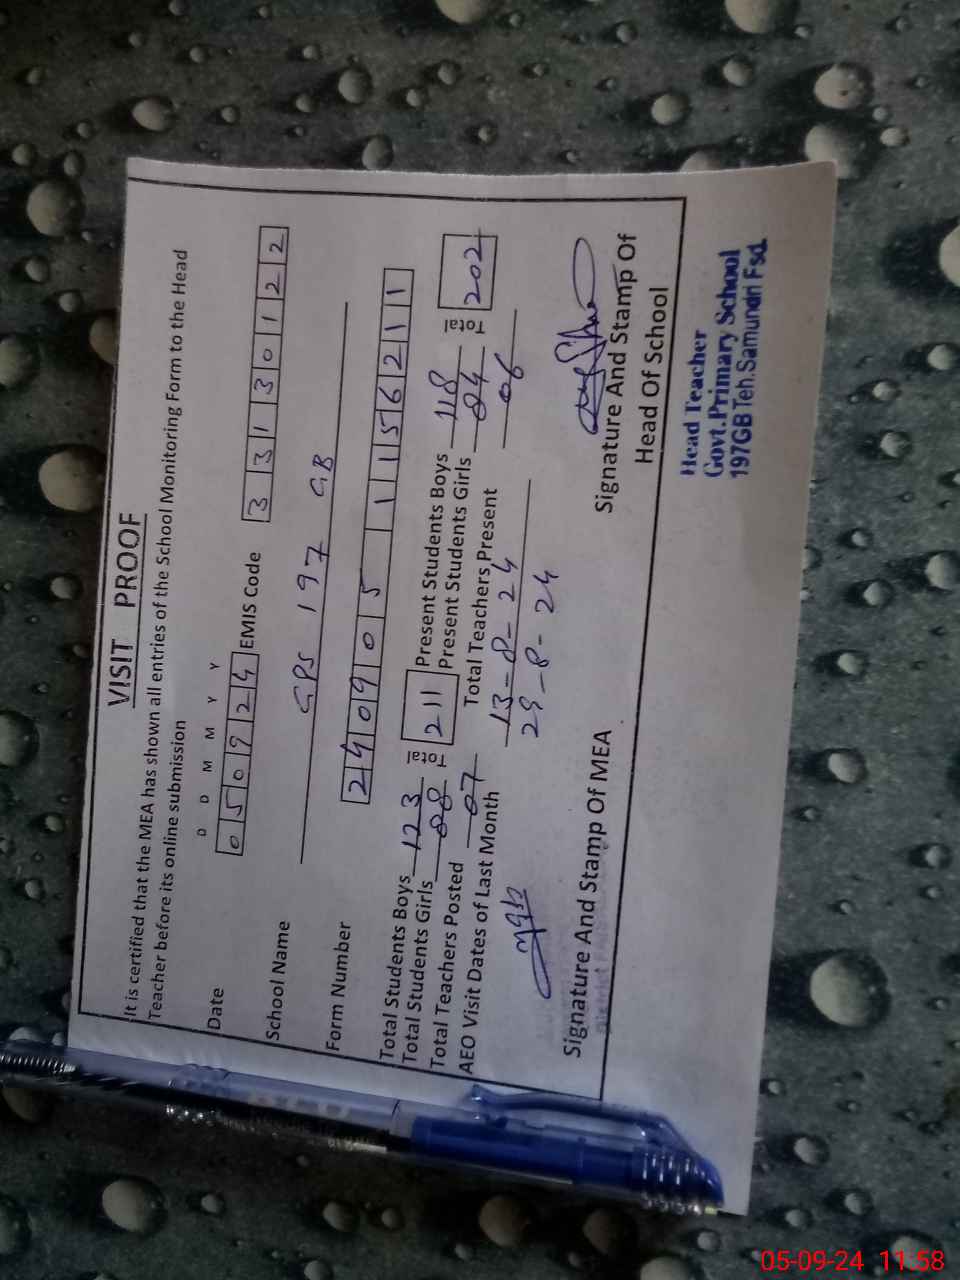 VISIT PROOF
It is certified that the MEA has shown all entries of the School Monitoring Form to the Head
Teacher before its online submission
D D M M Y Y
Date 050924 EMIS Code 33130122
School Name GPS 197 GB
Form Number 240905 1156211
Total Students Boys 123 Total 211 Present Students Boys 118 Total 202
Total Students Girls 88 Present Students Girls 84
Total Teachers Posted 07 Total Teachers Present 06
AEO Visit Dates of Last Month 13-8-24
29-8-24
Signature And Stamp Of MEA
Signature And Stamp Of
Head Of School
Head Teacher
Govt.Primary School
197GB Teh.Samundri Fsd.
05-09-24 11:58